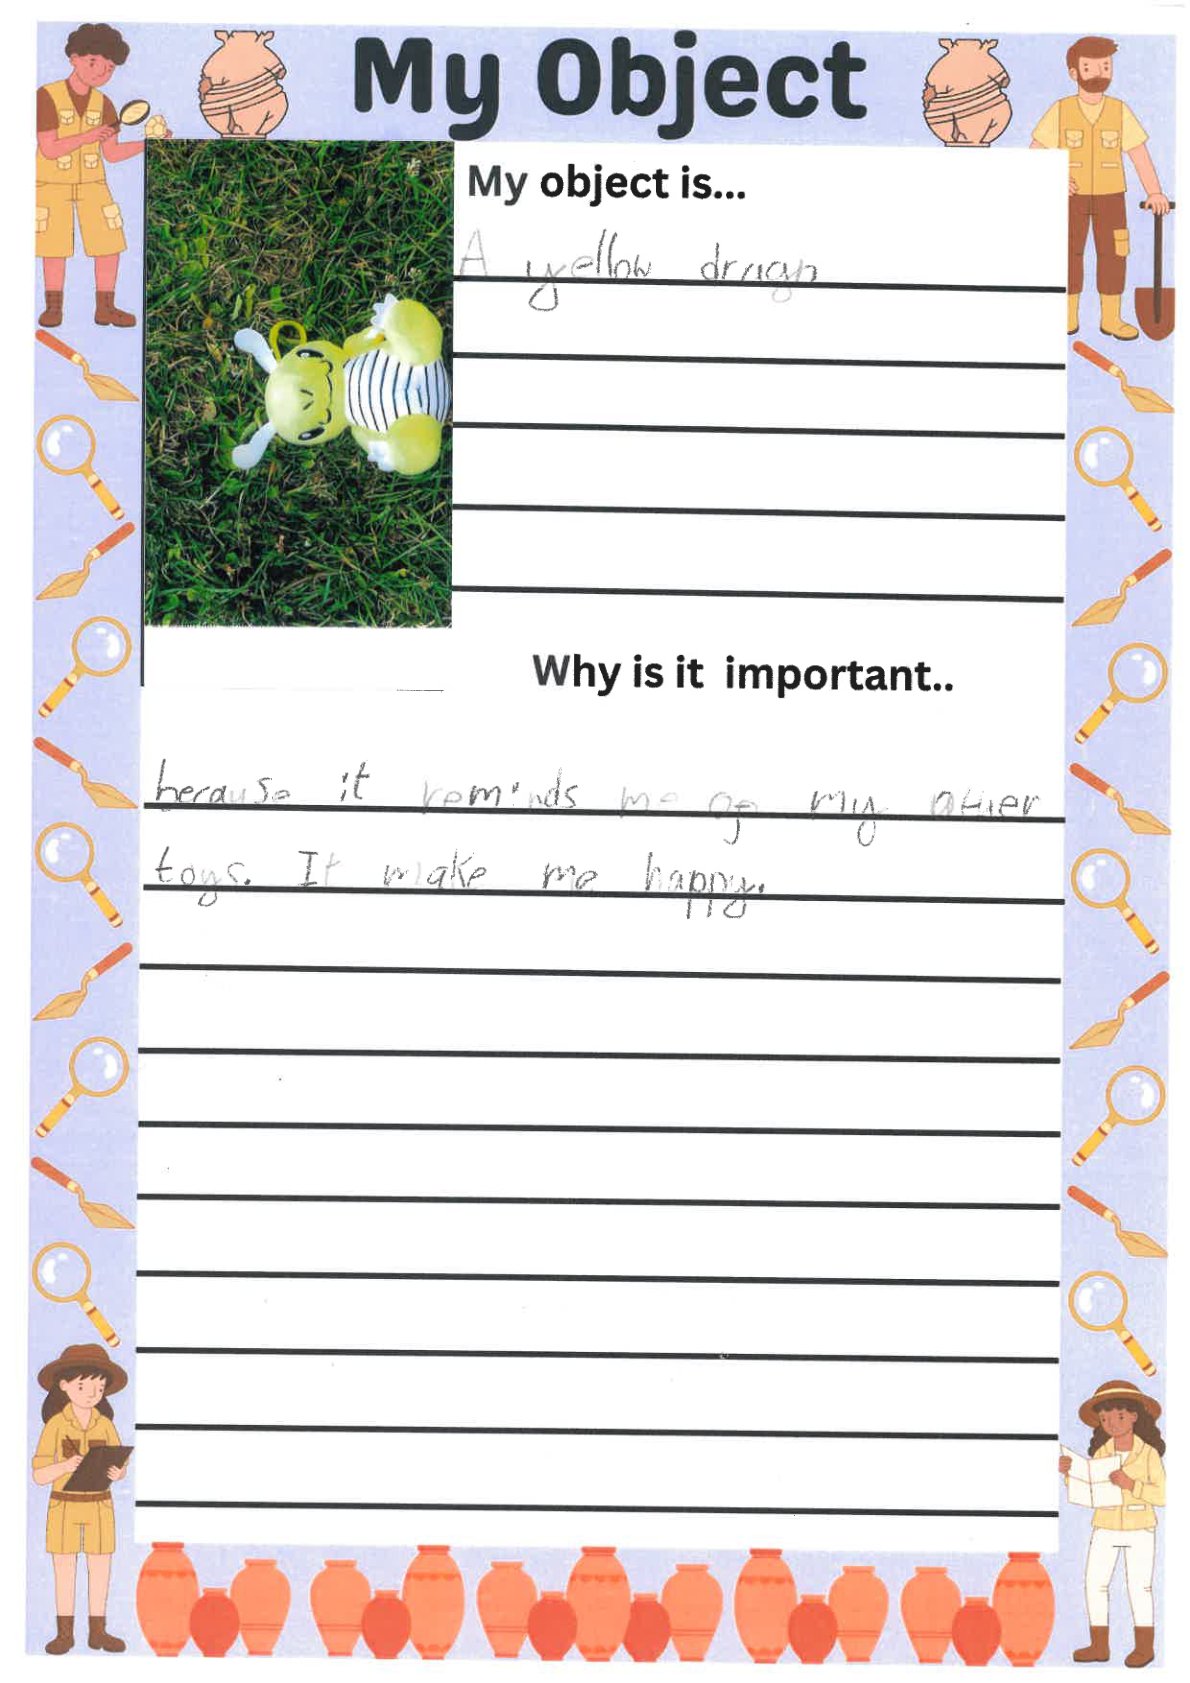 My Object
My object is...
A yellow dragn
Why is it important..
because it reminds me of my
toys. It make me happy.